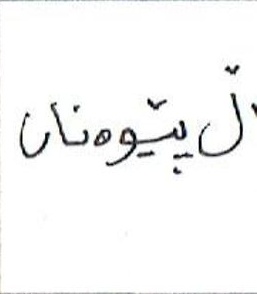 اڵ پێوەنان